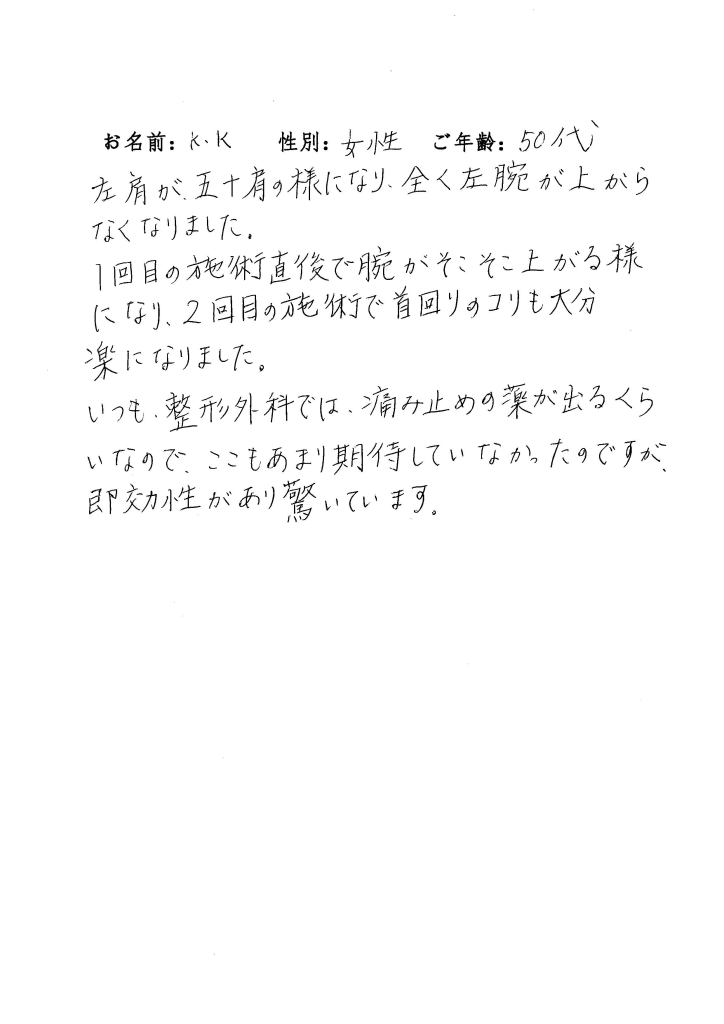 お名前: K.K 性別: 女性 ご年齢: 50代
左肩が、五十肩の様になり、全く左腕が上がら
なくなりました。
1回目の施術直後で腕がそこそこ上がる様
になり、2回目の施術で首回りのコリも大分
楽になりました。
いつも、整形外科では、痛み止めの薬が出るくら
いなので、ここもあまり期待していなかったのですが、
即効性があり驚いています。